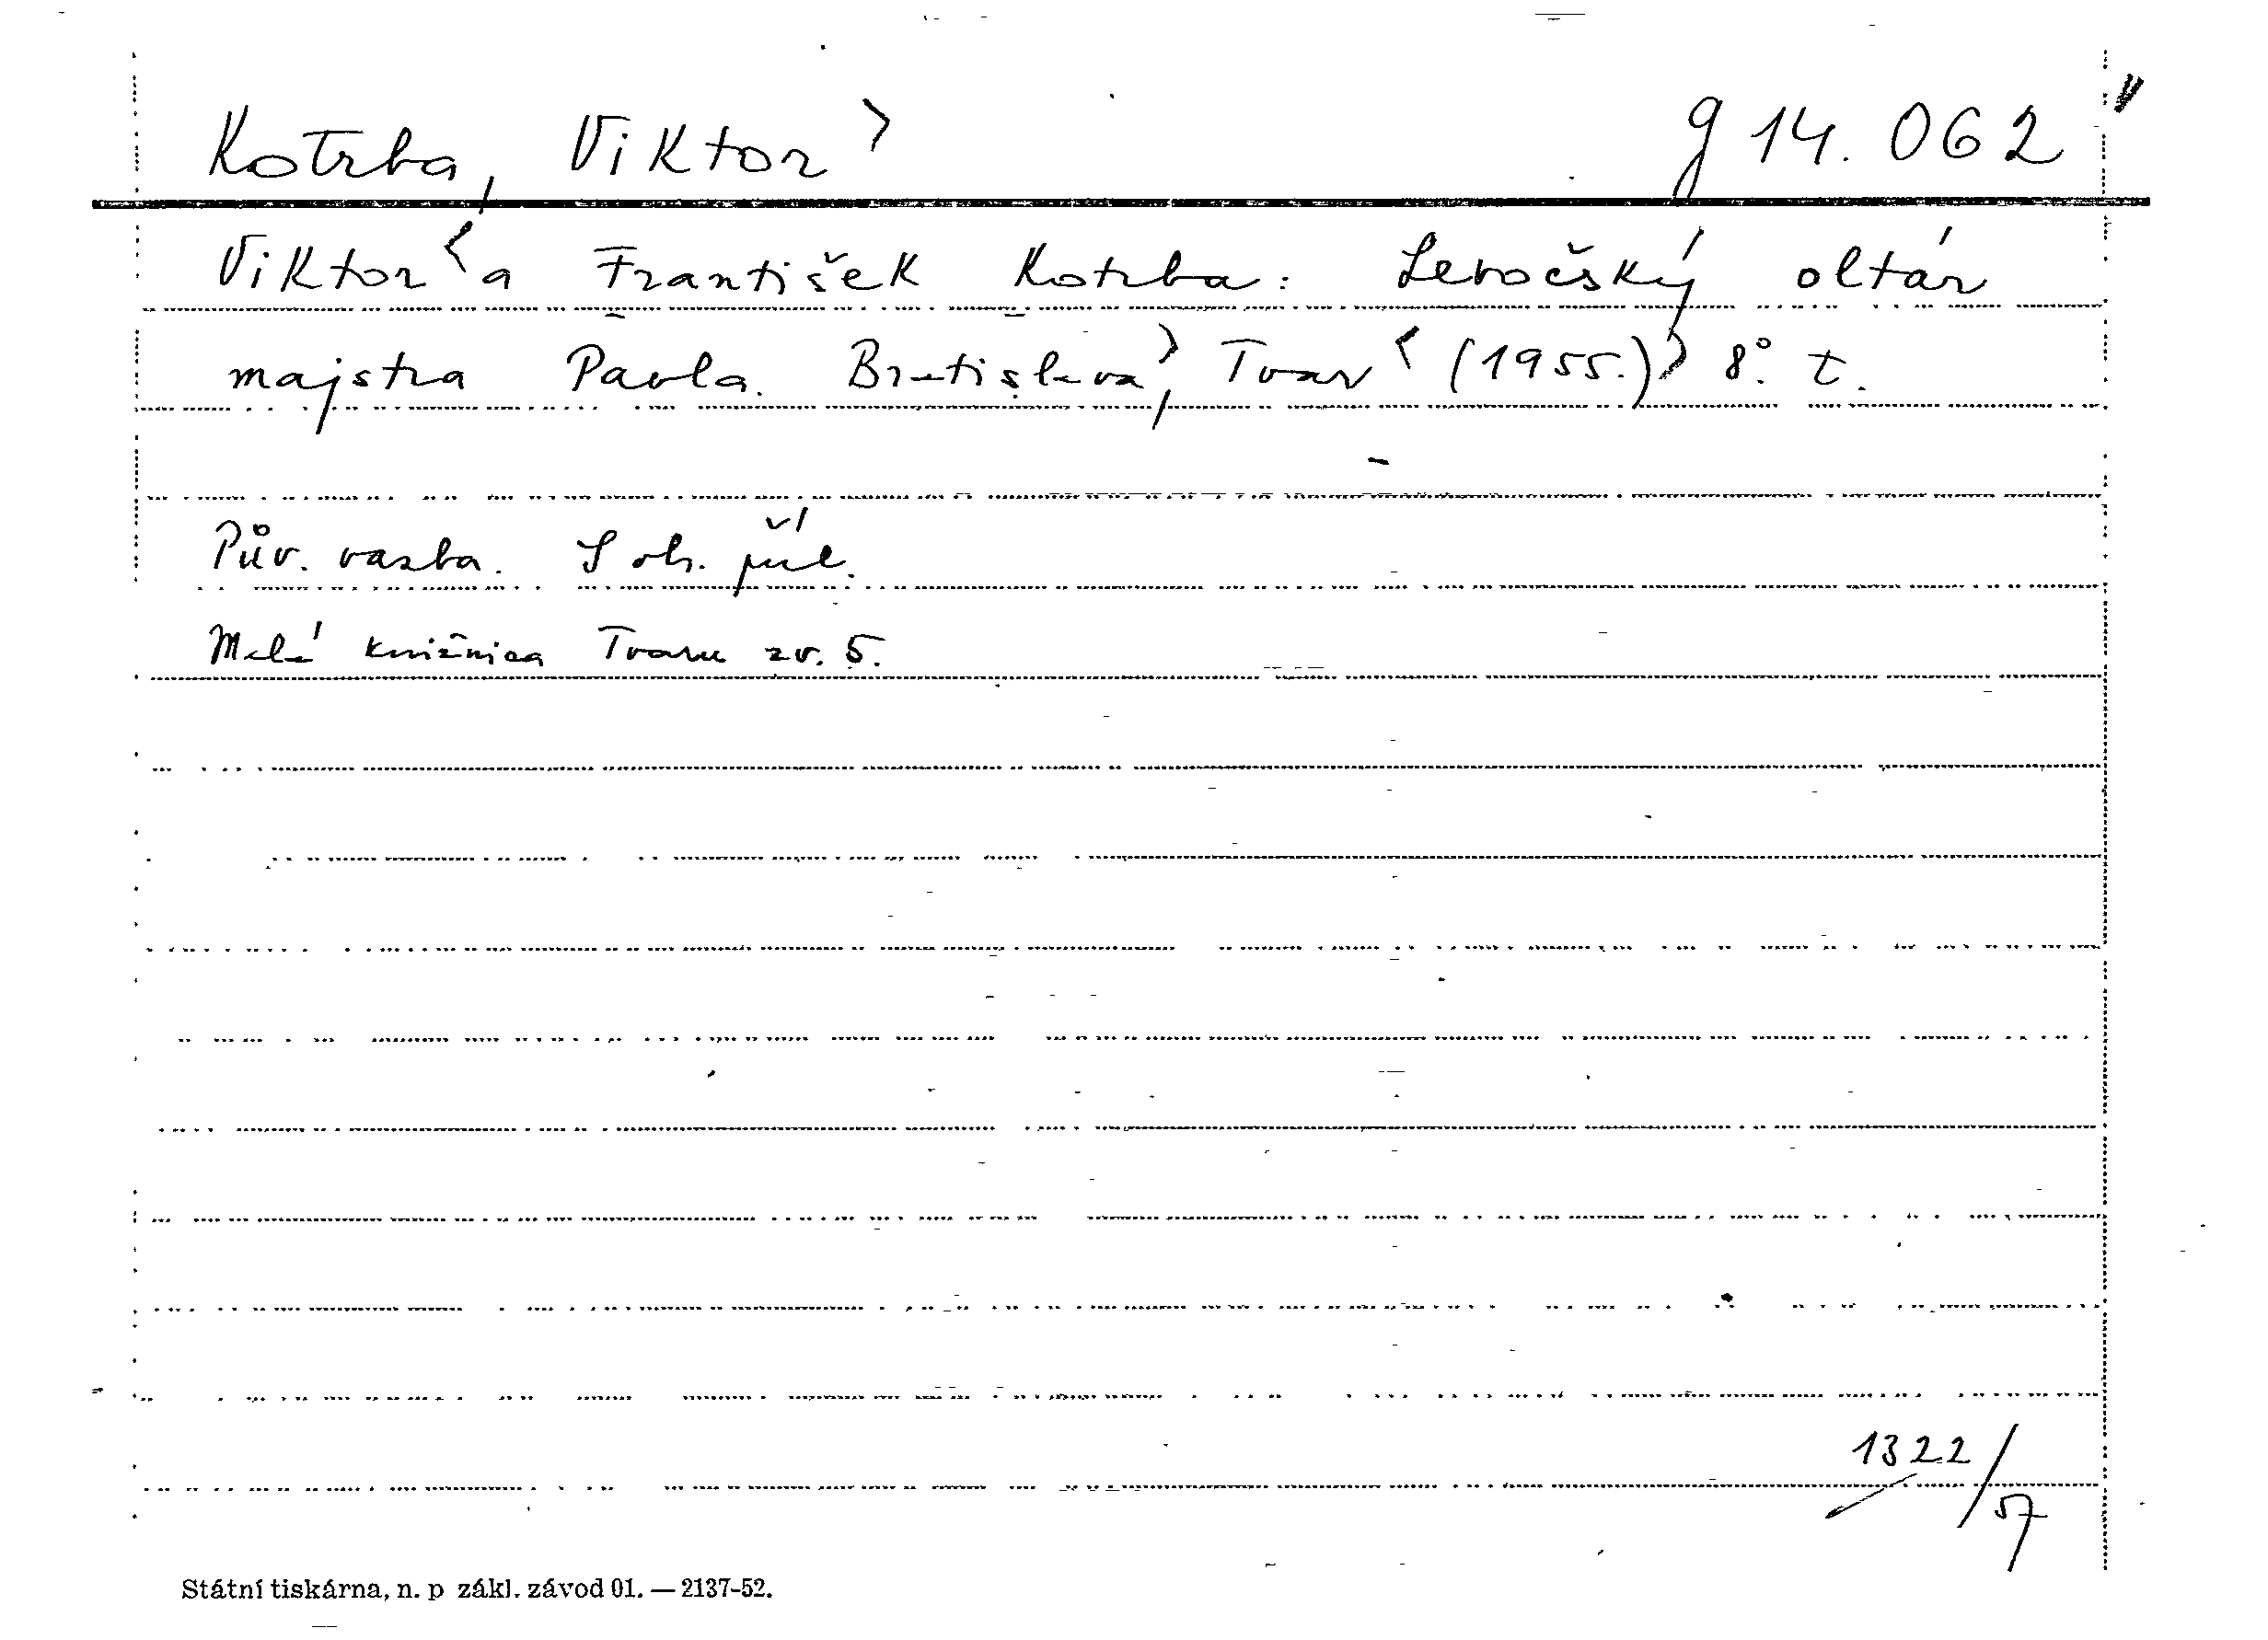 Kotrba, Viktor> g 14.062
Viktor< a František Kotrba: Levočský oltár
majstra Pavla. Bratislava>, Tvar< (1955.)> 8°. t.
Pův. vazba. S ob. příl.
Malá knižnica Tvaru zv. 5.
1322/57
Státní tiskárna, n. p zákl. závod 01. — 2137-52.